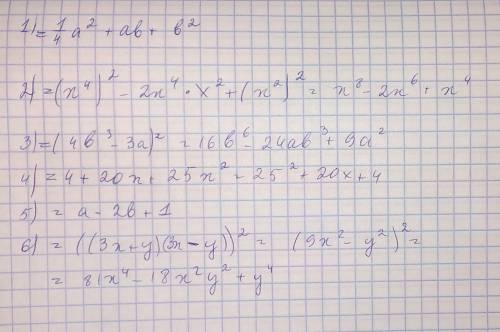 1) = 1/4 a² + ab + b²
2) = (x⁴)² - 2x⁴ · x² + (x²)² = x⁸ - 2x⁶ + x⁴
3) = (4b³ - 3a)² = 16b⁶ - 24ab³ + 9a²
4) = 4 + 20x + 25x² = 25² + 20x + 4
5) = a - 2b + 1
6) = ((3x + y)(3x - y))² = (9x² - y²)² =
= 81x⁴ - 18x²y² + y⁴